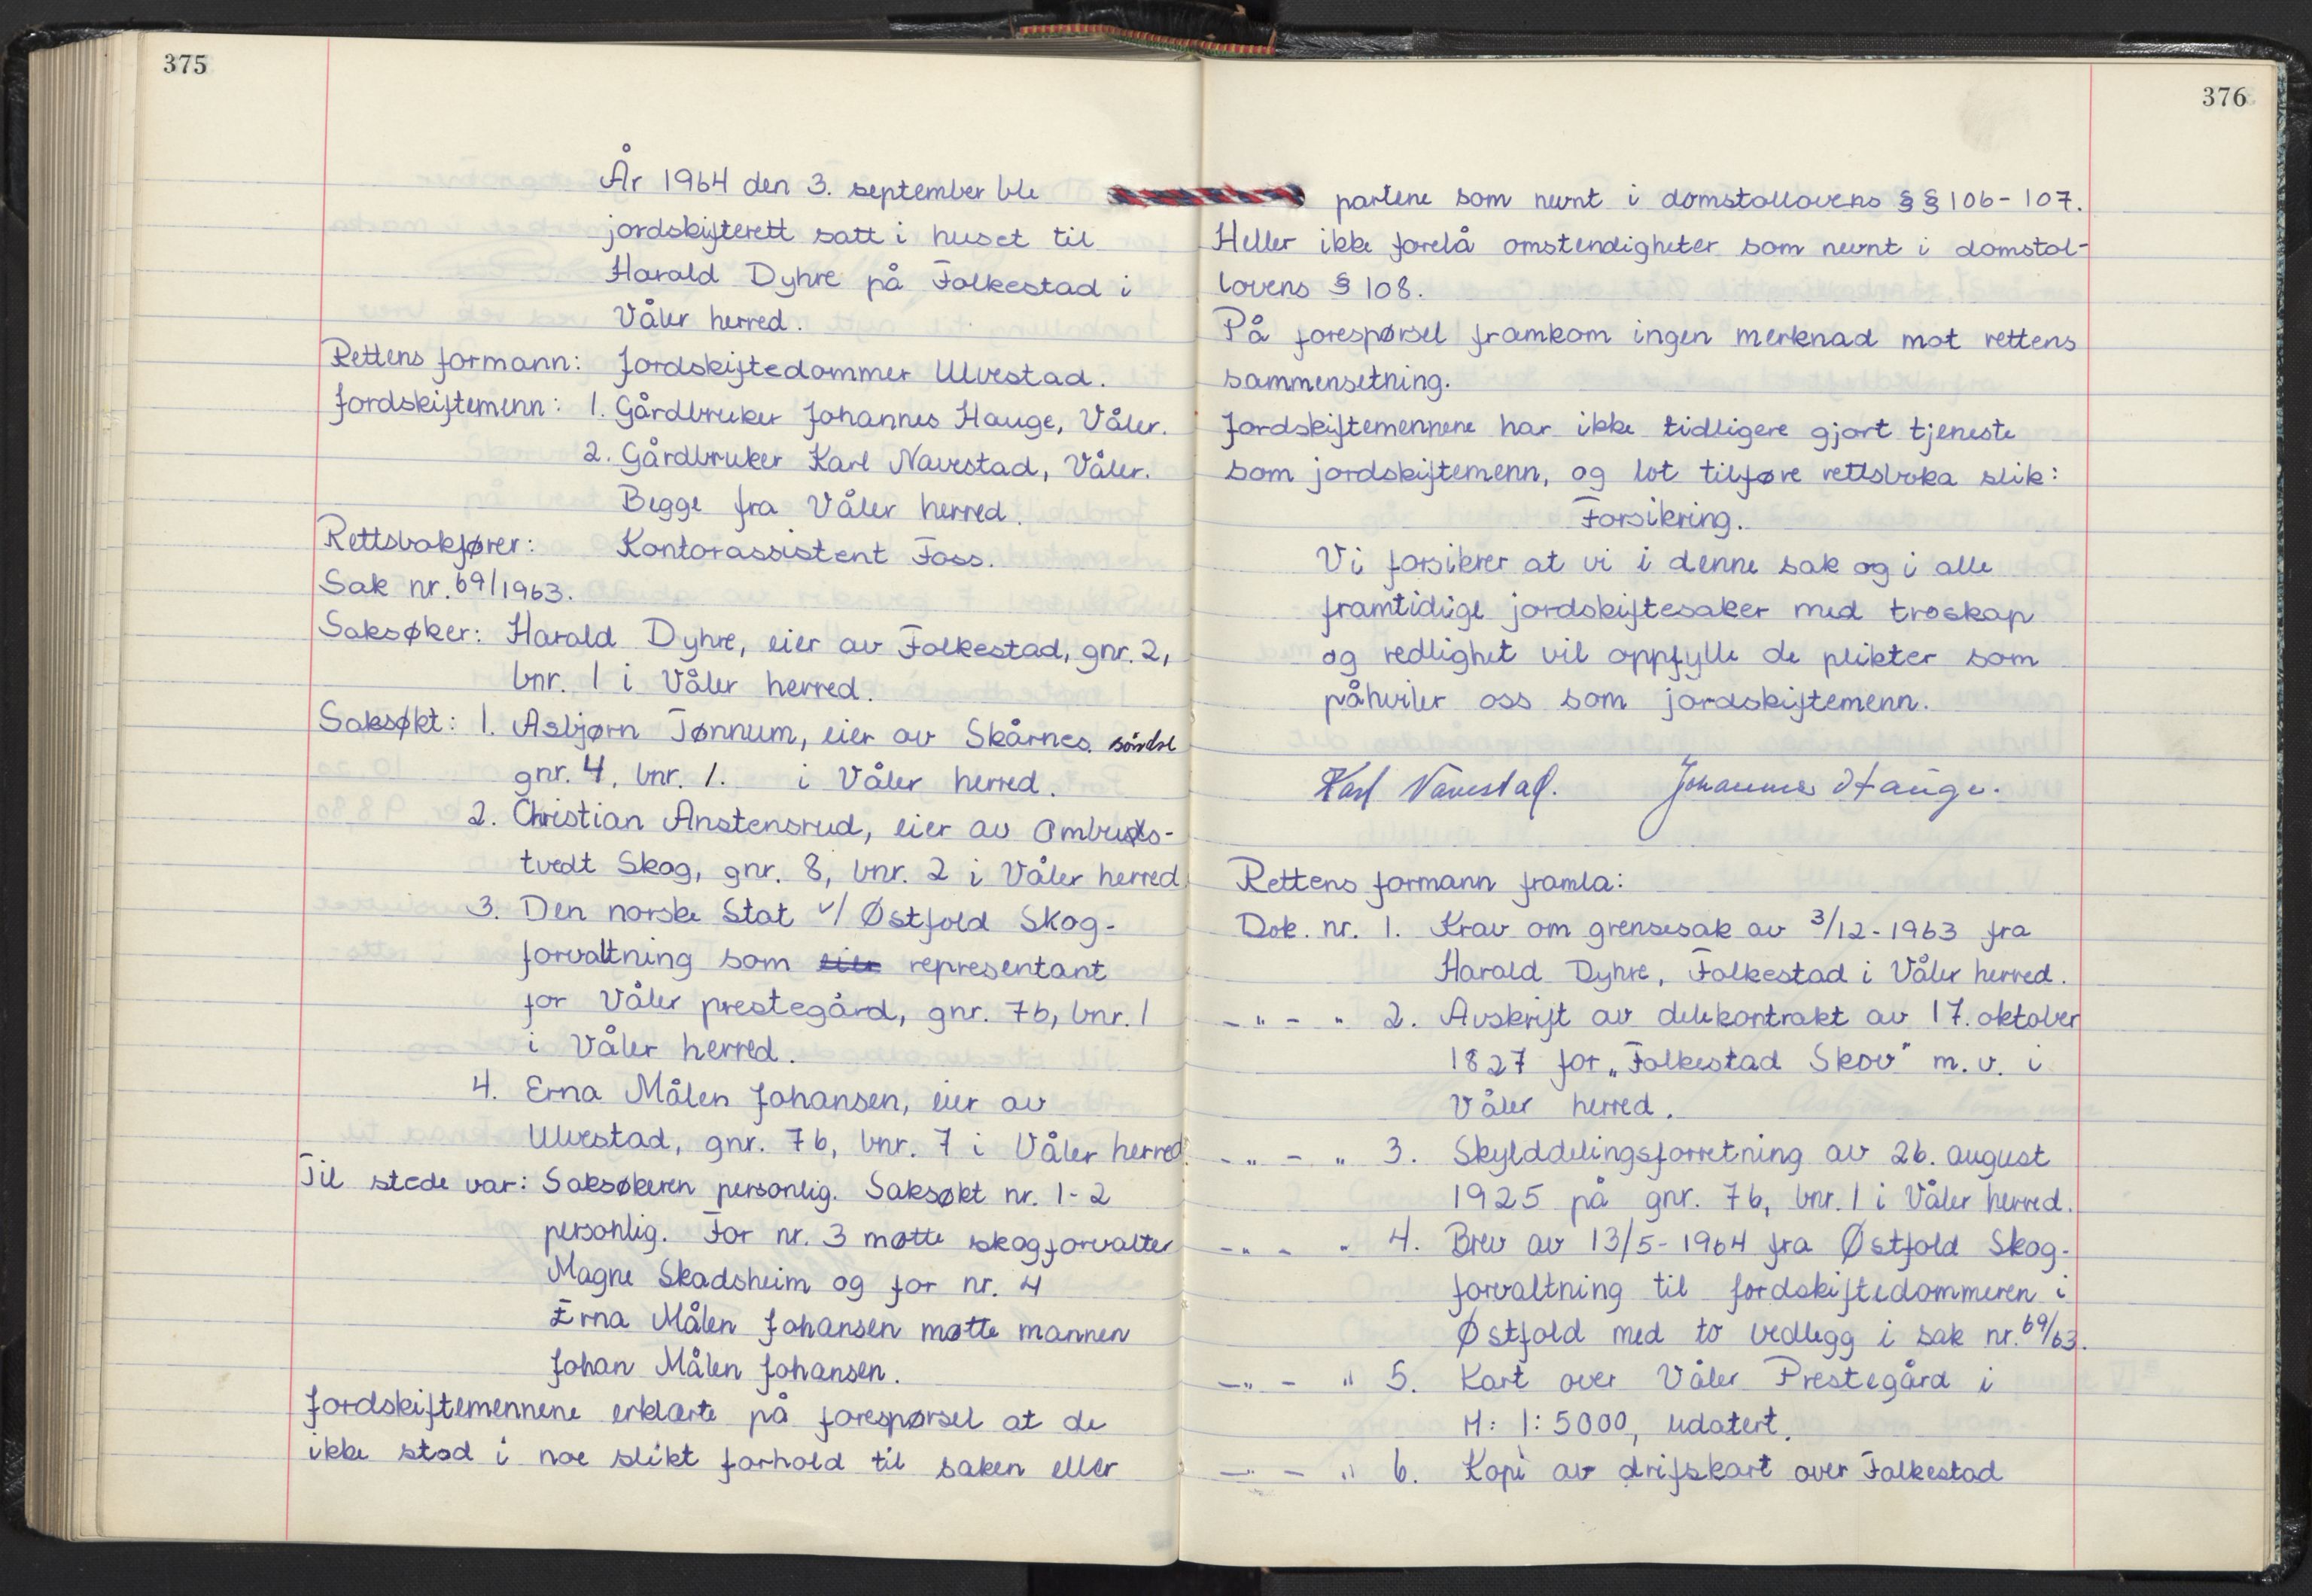 375
År 1964 den 3. september ble
jordskifterett satt i huset til
Harald Dyhre på Folkestad i
Våler herred.
Rettens formann: Jordskiftedommer Ulvestad.
Jordskiftemenn: 1. Gårdbruker Johannes Hauge, Våler.
2. Gårdbruker Karl Navestad, Våler.
Begge fra Våler herred.
Rettsbokfører: Kontorassistent Foss.
Sak nr. 69/1963.
Saksøker: Harald Dyhre, eier av Folkestad, gnr. 2,
bnr. 1 i Våler herred.
Saksøkt: 1. Asbjørn Tønnum, eier av Skårnes søndre
gnr. 4, bnr. 1. i Våler herred.
2. Christian Anstensrud, eier av Ombuds-
tvedt Skog, gnr. 8, bnr. 2 i Våler herred
3. Den norske Stat v/ Østfold Skog-
forvaltning som eier representant
for Våler prestegård, gnr. 76, bnr. 1
i Våler herred.
4. Erna Målen Johansen, eier av
Ulvestad, gnr. 76, bnr. 7 i Våler herred.
Til stede var: Saksøkeren personlig. Saksøkt nr. 1-2
personlig. For nr. 3 møtte skogforvalter
Magne Skadsheim og for nr. 4
Erna Målen Johansen møtte mannen
Johan Målen Johansen.
Jordskiftemennene erklærte på forespørsel at de
ikke stod i noe slikt forhold til saken eller
376
partene som nevnt i domstollovens §§ 106-107.
Heller ikke forelå omstendigheter som nevnt i domstol-
lovens § 108.
På forespørsel framkom ingen merknad mot rettens
sammensetning.
Jordskiftemennene har ikke tidligere gjort tjeneste
som jordskiftemenn, og lot tilføre rettsboka slik:
Forsikring.
Vi forsikrer at vi i denne sak og i alle
framtidige jordskiftesaker med troskap
og redlighet vil oppfylle de plikter som
påhviler oss som jordskiftemenn.
Karl Navestad. Johannes Hauge.
Rettens formann framla:
Dok. nr. 1. Krav om grensesak av 3/12-1963 fra
Harald Dyhre, Folkestad i Våler herred.
-"- " 2. Avskrift av delekontrakt av 17. oktober
1827 for „Folkestad Skov" m.v. i
Våler herred.
-"- " 3. Skylddelingsforretning av 26. august
1925 på gnr. 76, bnr. 1 i Våler herred.
-"- " 4. Brev av 13/5-1964 fra Østfold Skog-
forvaltning til Jordskiftedommeren i
Østfold med to vedlegg i sak nr. 69/63.
-"- " 5. Kart over Våler Prestegård i
M: 1:5000, udatert.
-"- " 6. Kopi av drifskart over Folkestad